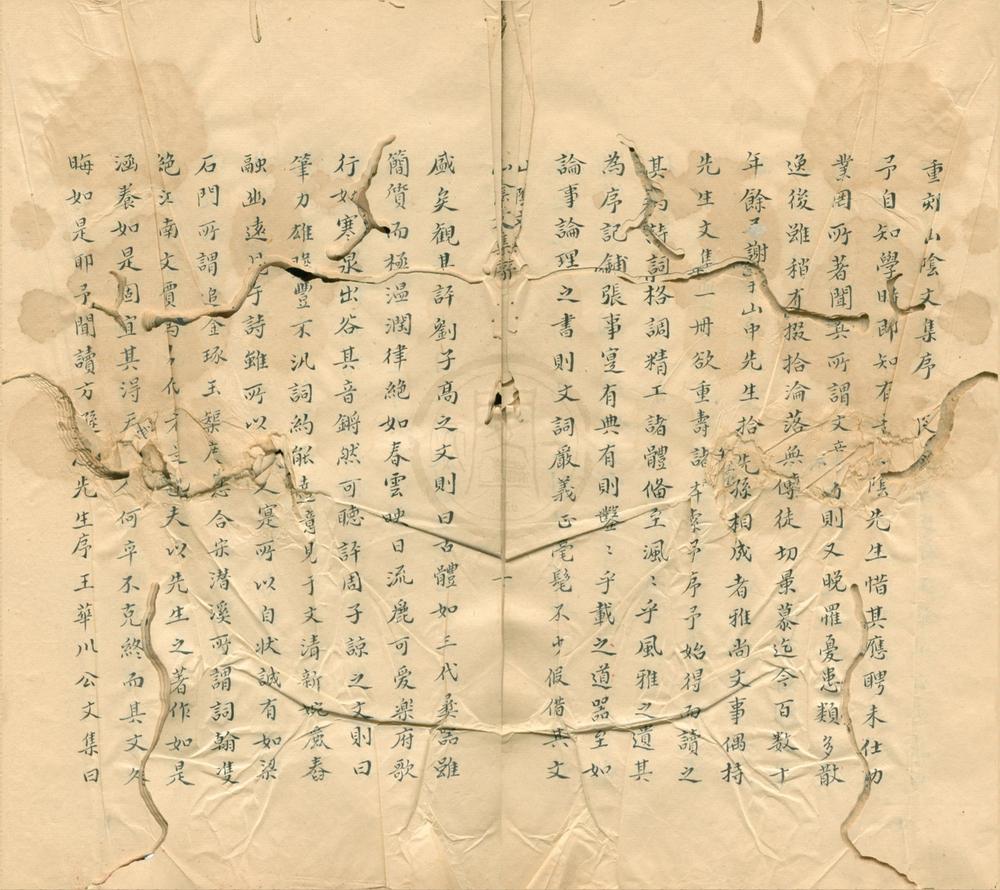 重刻山陰文集序
予自知學時即知有山陰先生惜其應聘未仕功
業罔所著聞其所謂文章者則又晚罹憂患類多散
逸後雖稍有掇拾淪落無傳徒切景慕迄今百數十
年餘謝于山中先生拾先孫相成者雅尚文事偶持
先生文集一冊欲重壽諸序予始得而讀之
其為詩詞格調精工諸體俻至渢渢乎風雅之遺其
為序記鋪張事寔有典有則鑿鑿乎載之道器至如
論事論理之書則文詞嚴義正毫髦不少假借其文
盛矣觀其評劉子高之文則曰古體如三代彞器雖
簡質而極温潤律絶如春雲映日流麗可愛樂府歌
行如寒泉出谷其音鏘然可聽評周子諒之文則曰
筆力雄豐不汎詞約能意見于文清新婉麗春
融幽遠于詩雖所以文寔所以自狀誠有如梁
石門所謂追金琢玉合宋潛溪所謂詞翰雙
絶江南文價夫以先生之著作如是
涵養如是固宜其得何卒不克終而其文久
晦如是耶予聞讀方先生序王華川公文集曰